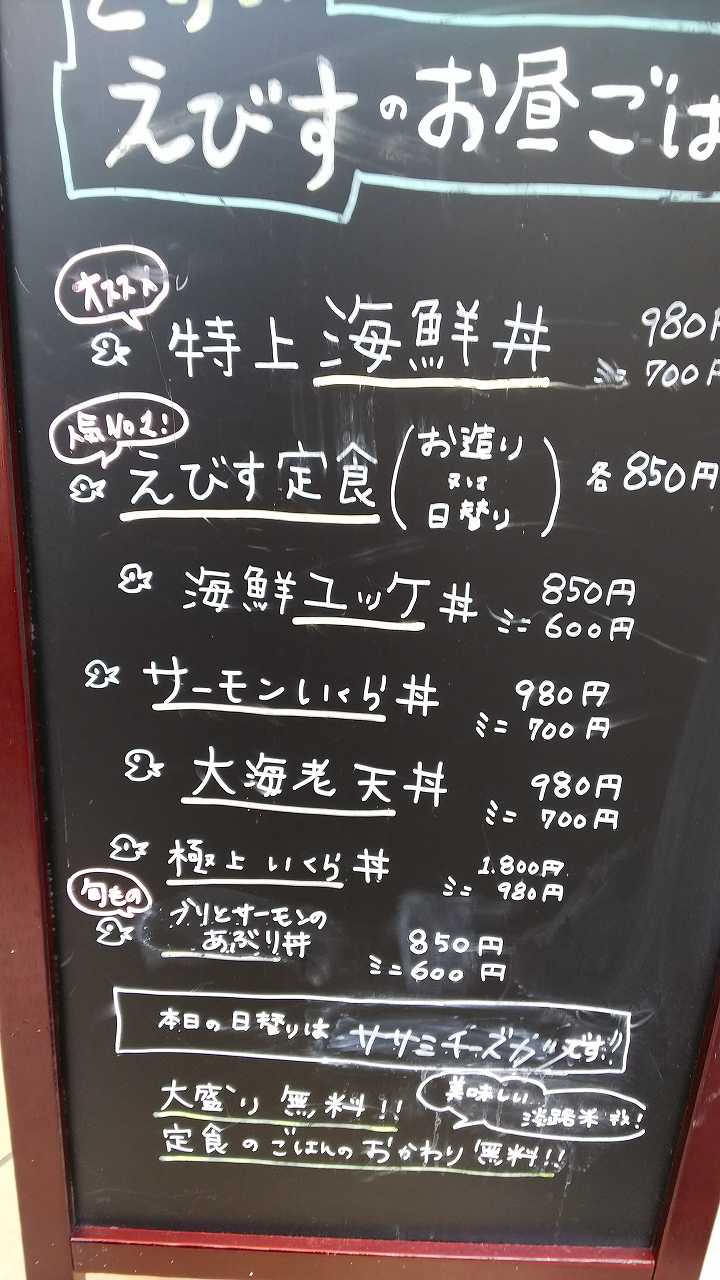 えびすのお昼ごは
オススメ
特上海鮮丼 980円
ミニ 700円
人気No1!
えびす定食(お造り又は日替り) 各850円
海鮮ユッケ丼 850円
ミニ 600円
サーモンいくら丼 980円
ミニ 700円
大海老天丼 980円
ミニ 700円
極上いくら丼 1.800円
ミニ 980円
旬もの
ブリとサーモンの
あぶり丼 850円
ミニ 600円
本日の日替りは ササミチーズカツです!!
大盛り無料!!
美味しい
淡路米
定食のごはんのおかわり無料!!